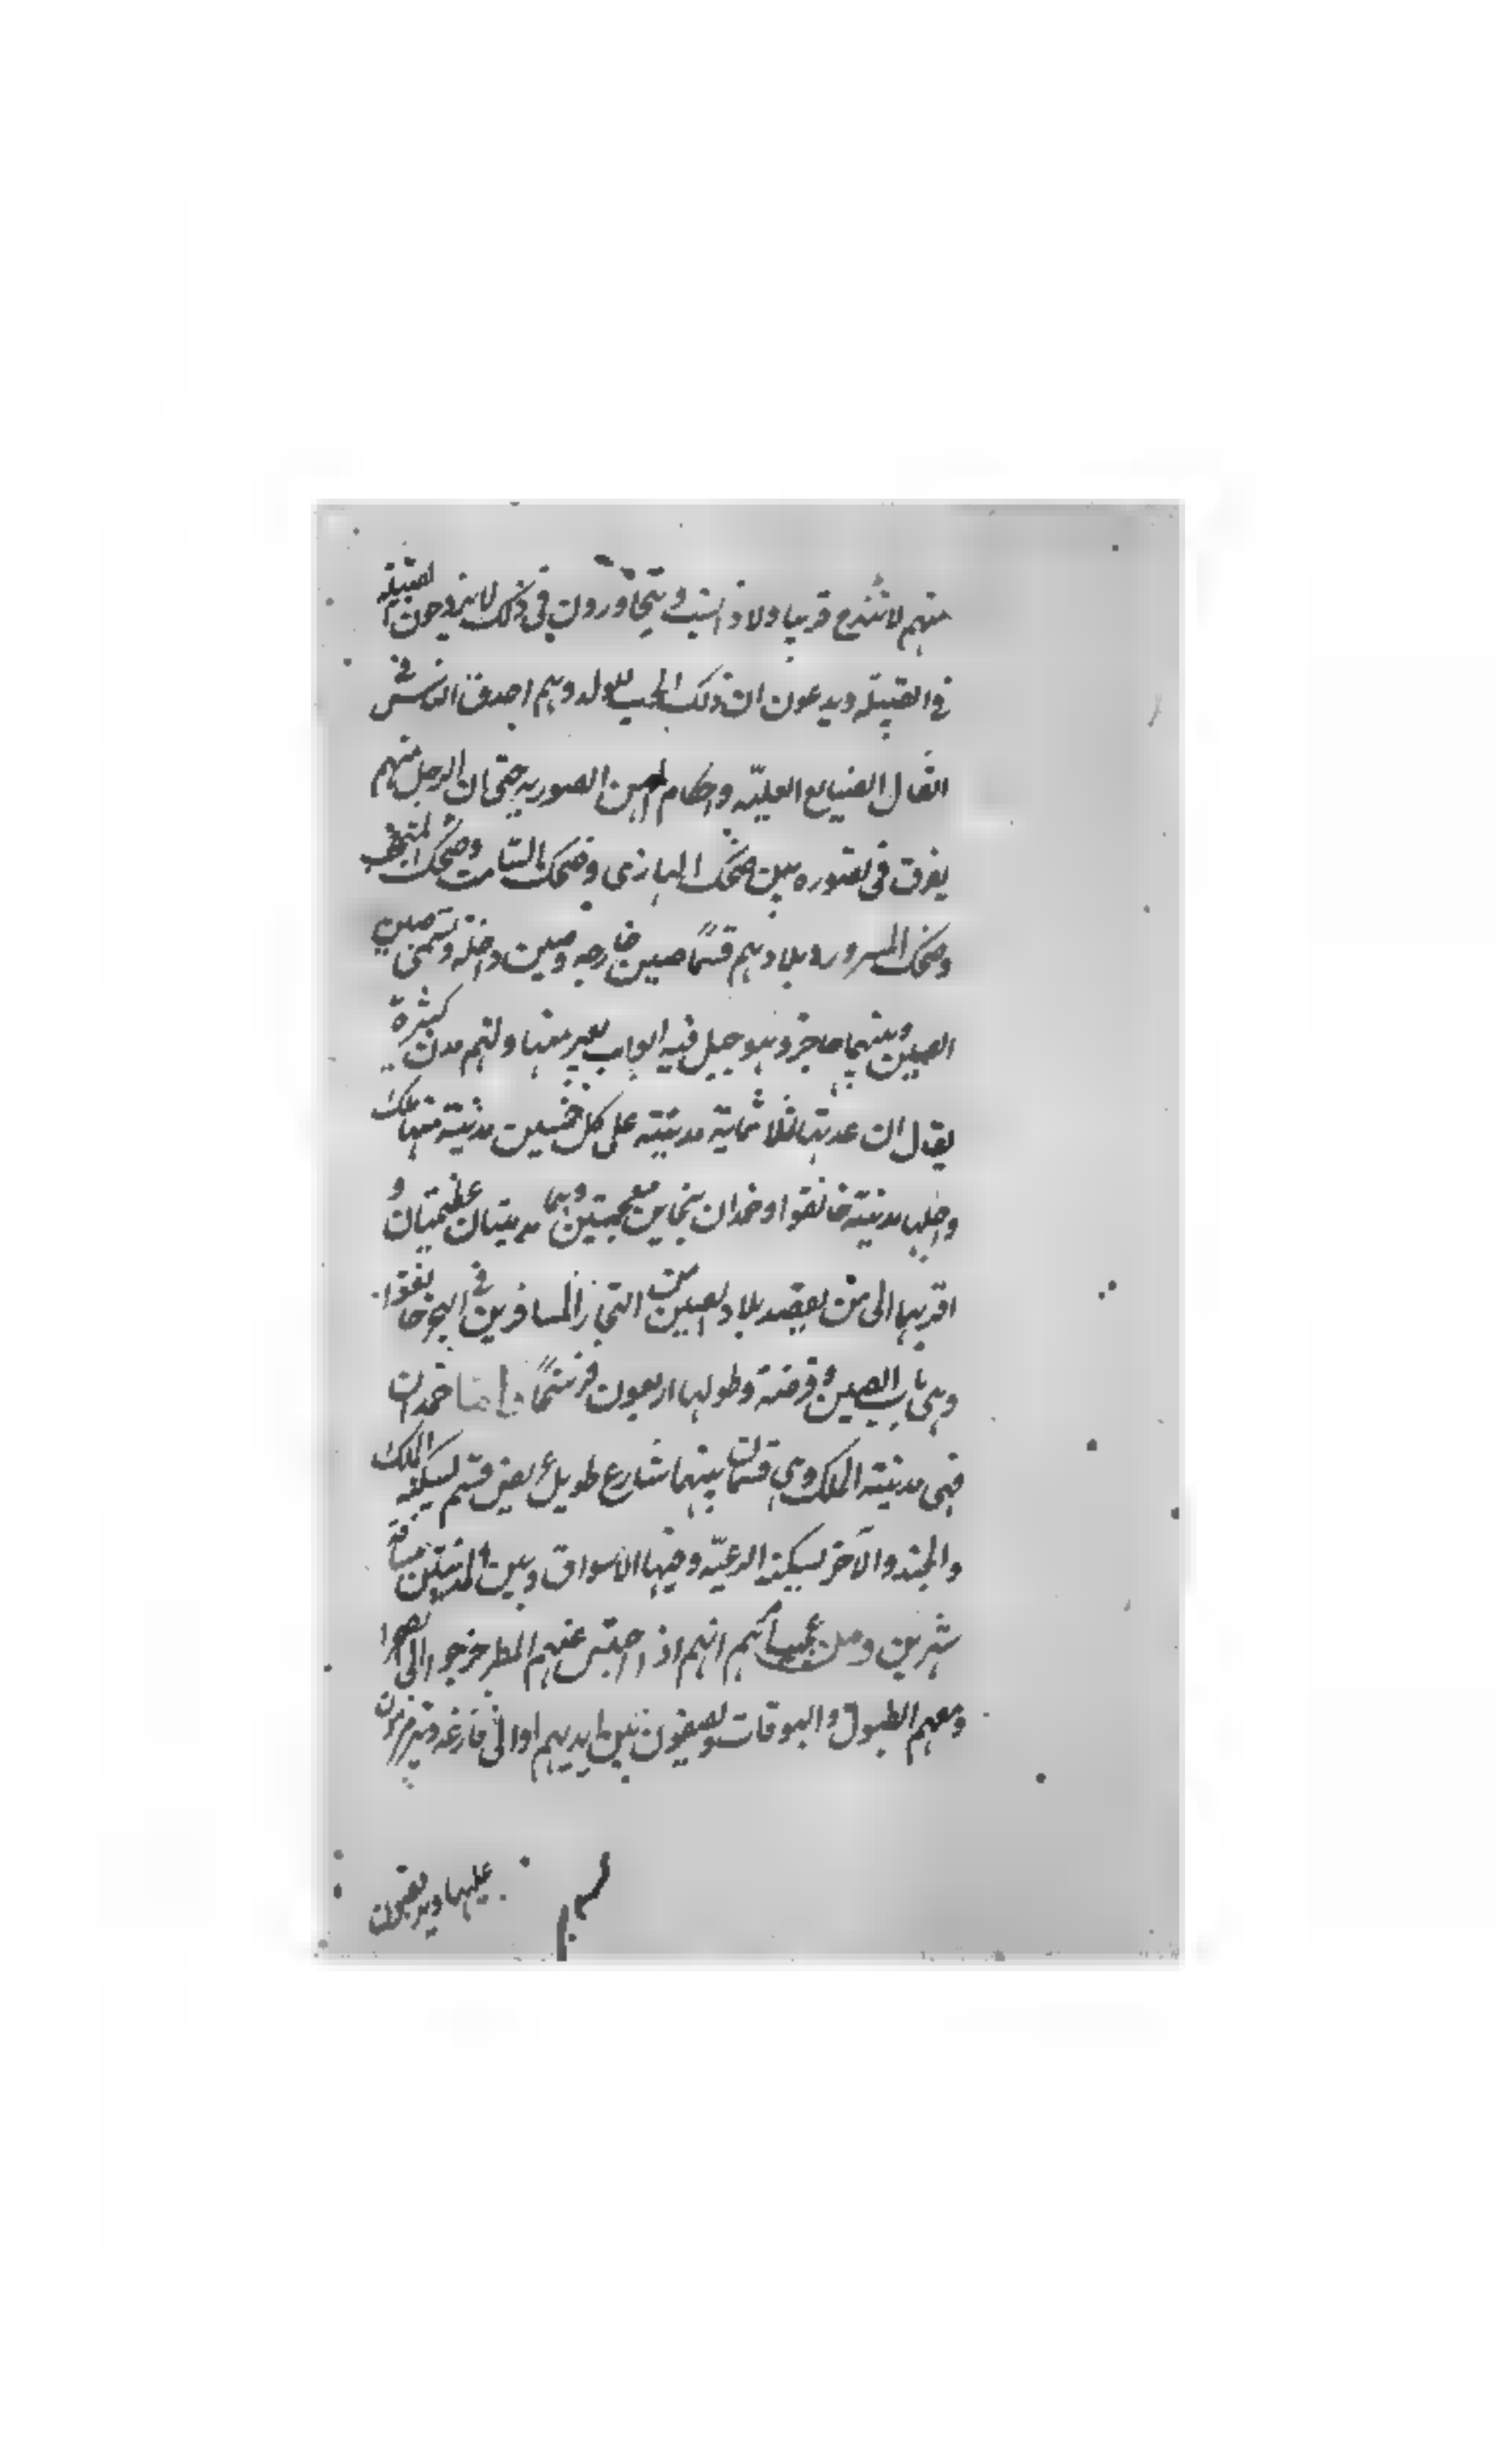 منهم لا تتزوج قريبا ولا ذا نسب ويتجاوزون في ذلك لا يتزوجون لقبيلة
في القبيلة ويدعون ان ذلك انجب للولد وهم احذق الناس في
اتقان الصنايع العلميّه واحكام المهن الصوريه حتى ان الرجل منهم
يفرق في تصوره بين ضحك الهازى وضحك الشامت وضحك المتعجب
وضحك المسرور وبلادهم قسمًا صين خارجه وصين داخله وتسمى صين
الصين وبينهما حاجز وهو جبل فيه ابواب يعبر منها ولهم مدن كثيرة
يقال ان عدتها ثلاثماية مدينة على كل خمسين مدينة منها ملك
واجلها مدينة خانقوا وخمدان وهما مدينتان عظيمتان و
اقربها الى من يقصد بلاد الصين من التجار المسافرين في البحر خانقوا
وهي باب الصين وفرضة وطولها اربعون فرسخًا واما خمدان
فهي مدينة الملك وهي قسمان بينهما شارع طويل عريض قسم يسكنه الملك
والجند والآخر يسكنه الرعيّه وفيها الاسواق وبين المدينتين مسافة
شهرين ومن عجيب انهم اذا احتبس عنهم المطر خرجوا الى لصحرا
ومعهم الطبول والبوقات ويصفون بين ايديهم اواني فارغه
عليها ويرتقبون